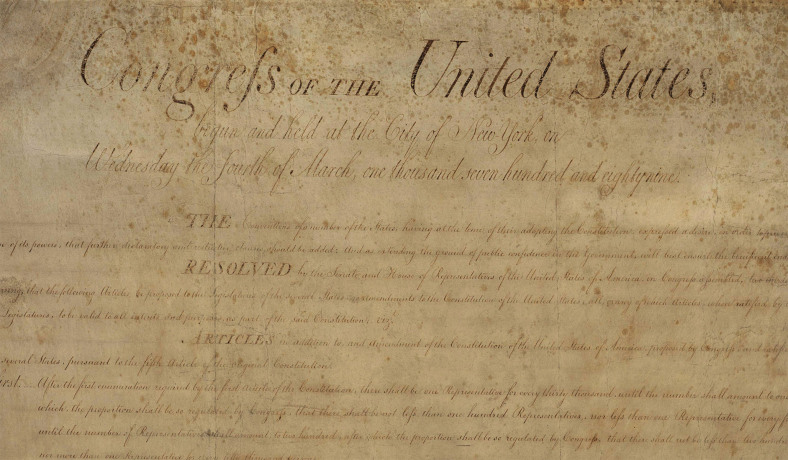 Congreſs OF THE United States,
begun and held at the City of New-York, on
Wednesday the fourth of March, one thousand seven hundred and eighty nine.
THE Conventions of a number of the States, having at the time of their adopting the Constitution, expressed a desire, in order to prevent
of its powers, that further declaratory and restrictive clauses should be added: And as extending the ground of public confidence in the Government, will best ensure the beneficent ends
RESOLVED by the Senate and House of Representatives of the United States of America, in Congress assembled, two thirds
that the following Articles be proposed to the Legislatures of the several States, as amendments to the Constitution of the United States, all, or any of which Articles, when ratified by
Legislatures, to be valid to all intents and purposes, as part of the said Constitution; viz.
ARTICLES in addition to, and Amendment of the Constitution of the United States of America, proposed by Congress, and
several States, pursuant to the fifth Article of the original Constitution.
After the first enumeration required by the first Article of the Constitution, there shall be one Representative for every thirty thousand, until the number shall amount to one
which, the proportion shall be so regulated by Congress, that there shall be not less than one hundred Representatives, nor less than one Representative for every
until the number of Representatives shall amount to two hundred, after which the proportion shall be so regulated by Congress, that there shall not be less than two hundred
nor more than one Representative for every fifty thousand persons.